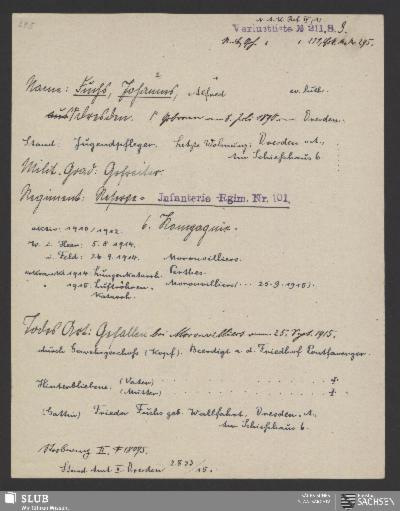 295
Verlustliste № 211, S. 9.
Name: Fuchs, Johannes, Alfred ev. luth.
aus Dresden. Geboren am 8. Juli 1890 in Dresden.
Stand: Jugendpfleger. Letzte Wohnung: Dresden A.,
Am Schießhaus 6
Milit. Grad: Gefreiter.
Regiment: Reserve- Infanterie Rgim. Nr. 101,
6. Kompagnie.
aktiv: 1910/1912.
W. z. Heer: 5.8.1914.
i. Feld: 26.9.1914. Moronvilliers.
erkrankt 1914 Lungenkatarrh. Perthes.
" 1915 Luftröhren- Moronvilliers (... 25.9.1915).
katarrh.
Todes Art: Gefallen bei Moronvilliers am 25. Sept. 1915.
durch Gewehrgeschoß (Kopf). Beerdigt a. d. Friedhof Pontfaverger.
Hinterbliebene: (Vater) †.
(Mutter) †.
(Gattin) Frieda Fuchs geb. Wallfahrt, Dresden A.,
Am Schießhaus 6.
Stand. Amt I Dresden 2833/15.
SLUB
Wir führen Wissen.
SACHSEN